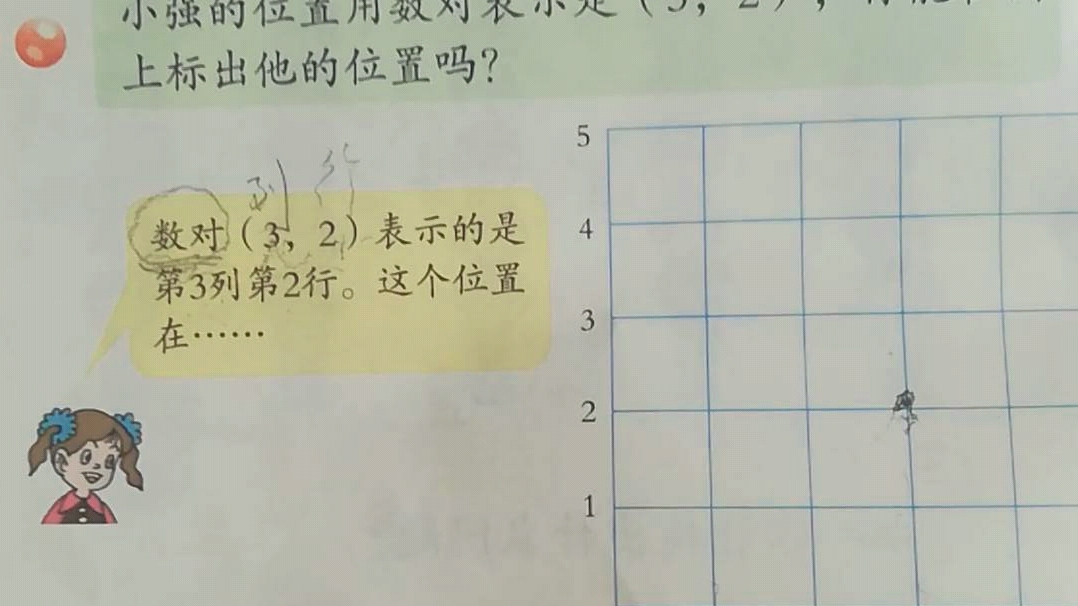 小强的位置用数对表示是（3，2），
上标出他的位置吗？
列 行
数对（3，2）表示的是
第3列第2行。这个位置
在……
5
4
3
2
1